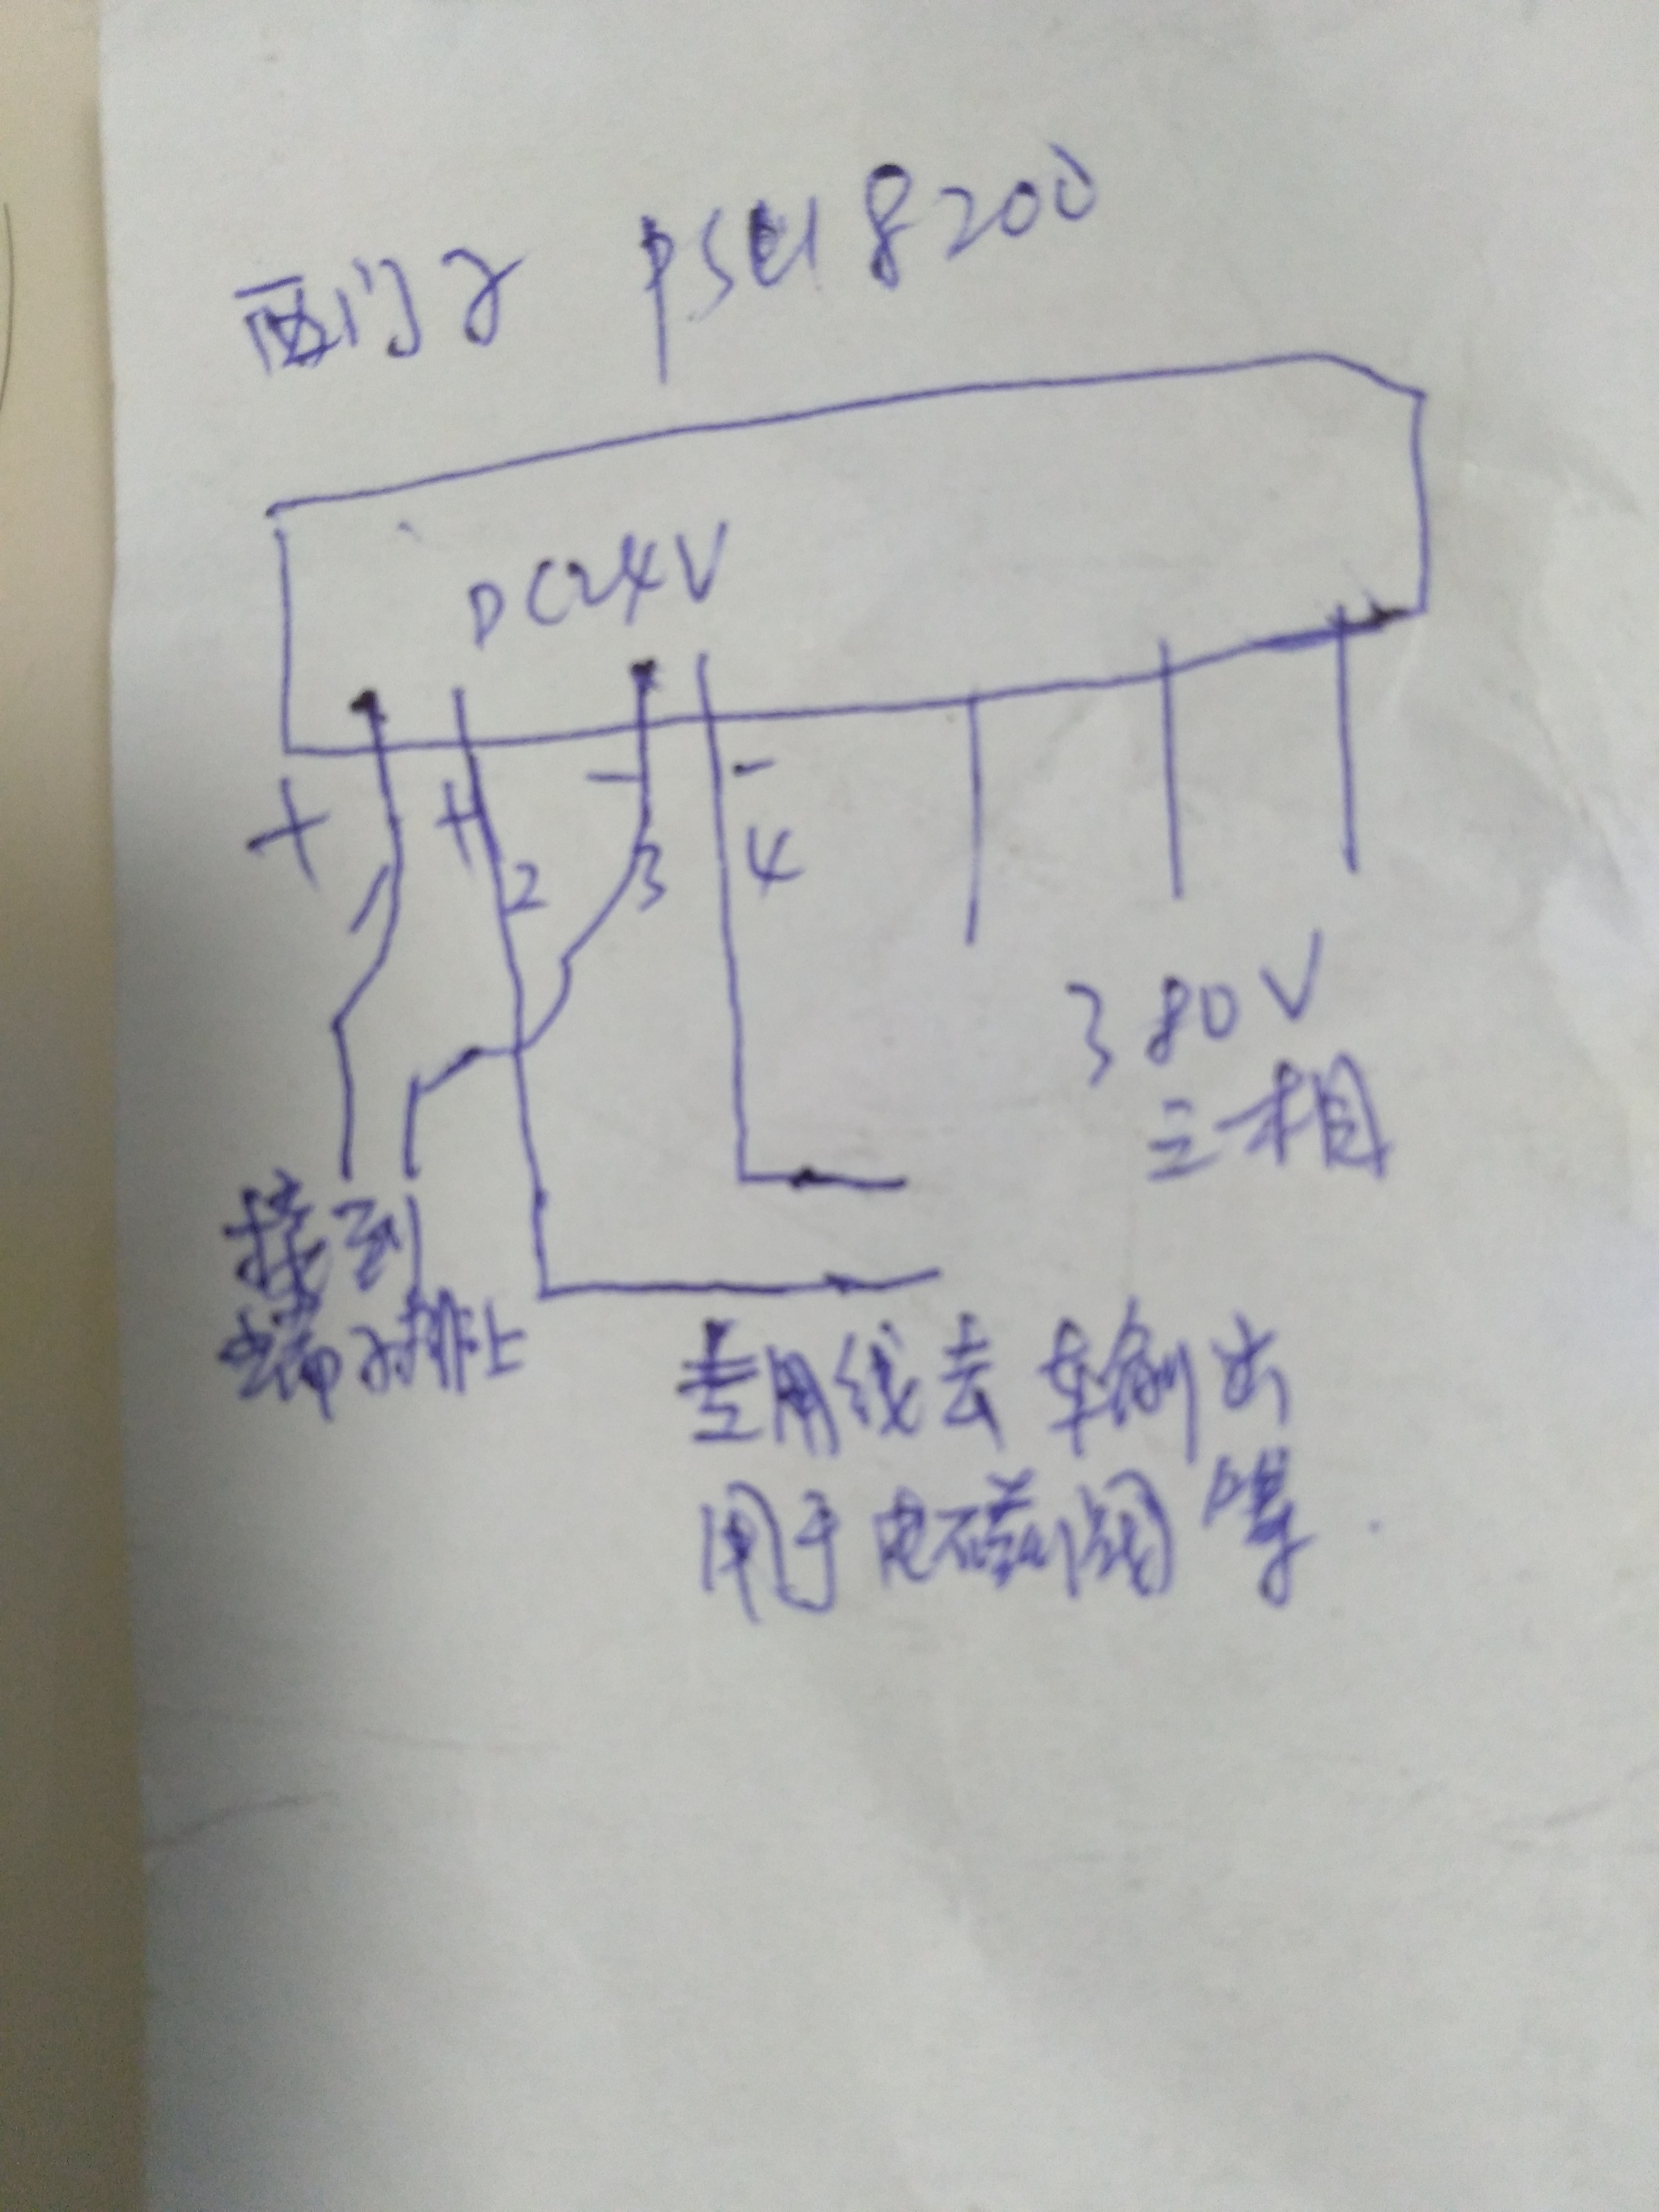 西门子 PSU 8200
DC24V
+ + - -
1 2 3 4
380V
三相
接到
端子排上
专用线去 车输出
用于电磁阀等.